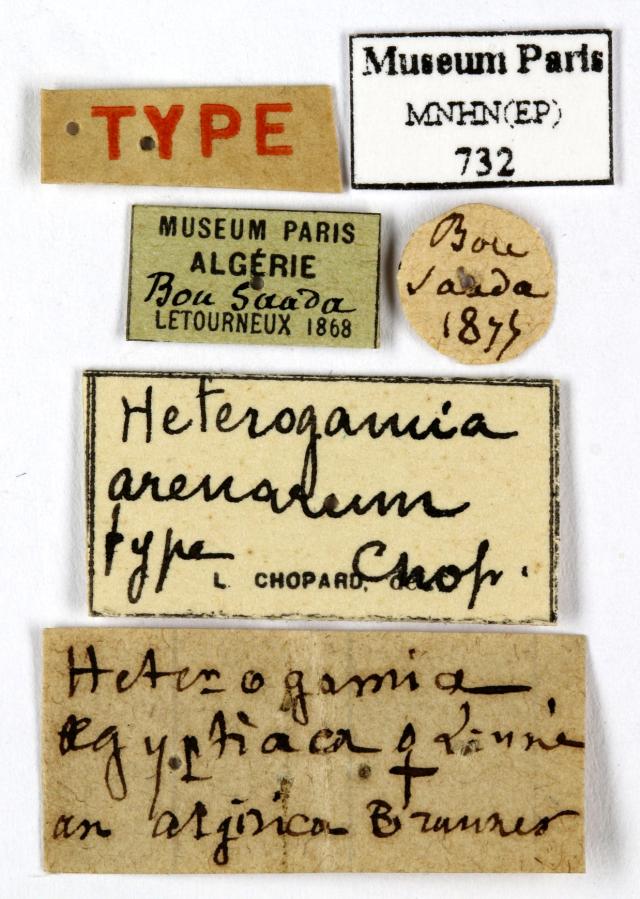 TYPE
Museum Paris
MNHN(EP)
732
MUSEUM PARIS
ALGÉRIE
Bou Saada
LETOURNEUX 1868
Bou
Saada
1875
Heterogamia
arenarum
type Chop.
L. CHOPARD,
Heterogamia
ægyptiaca ♀ Linné
an algirica Brunner